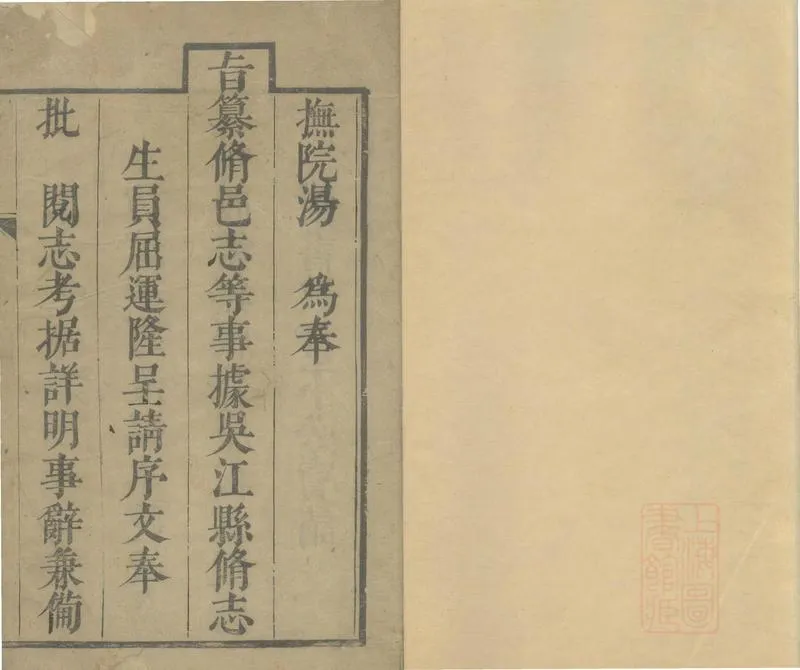 撫院湯　為奉
旨纂脩邑志等事據吳江縣脩志
生員屈運隆呈請序文奉
批　閱志考据詳明事辭兼備
上海圖
書館所